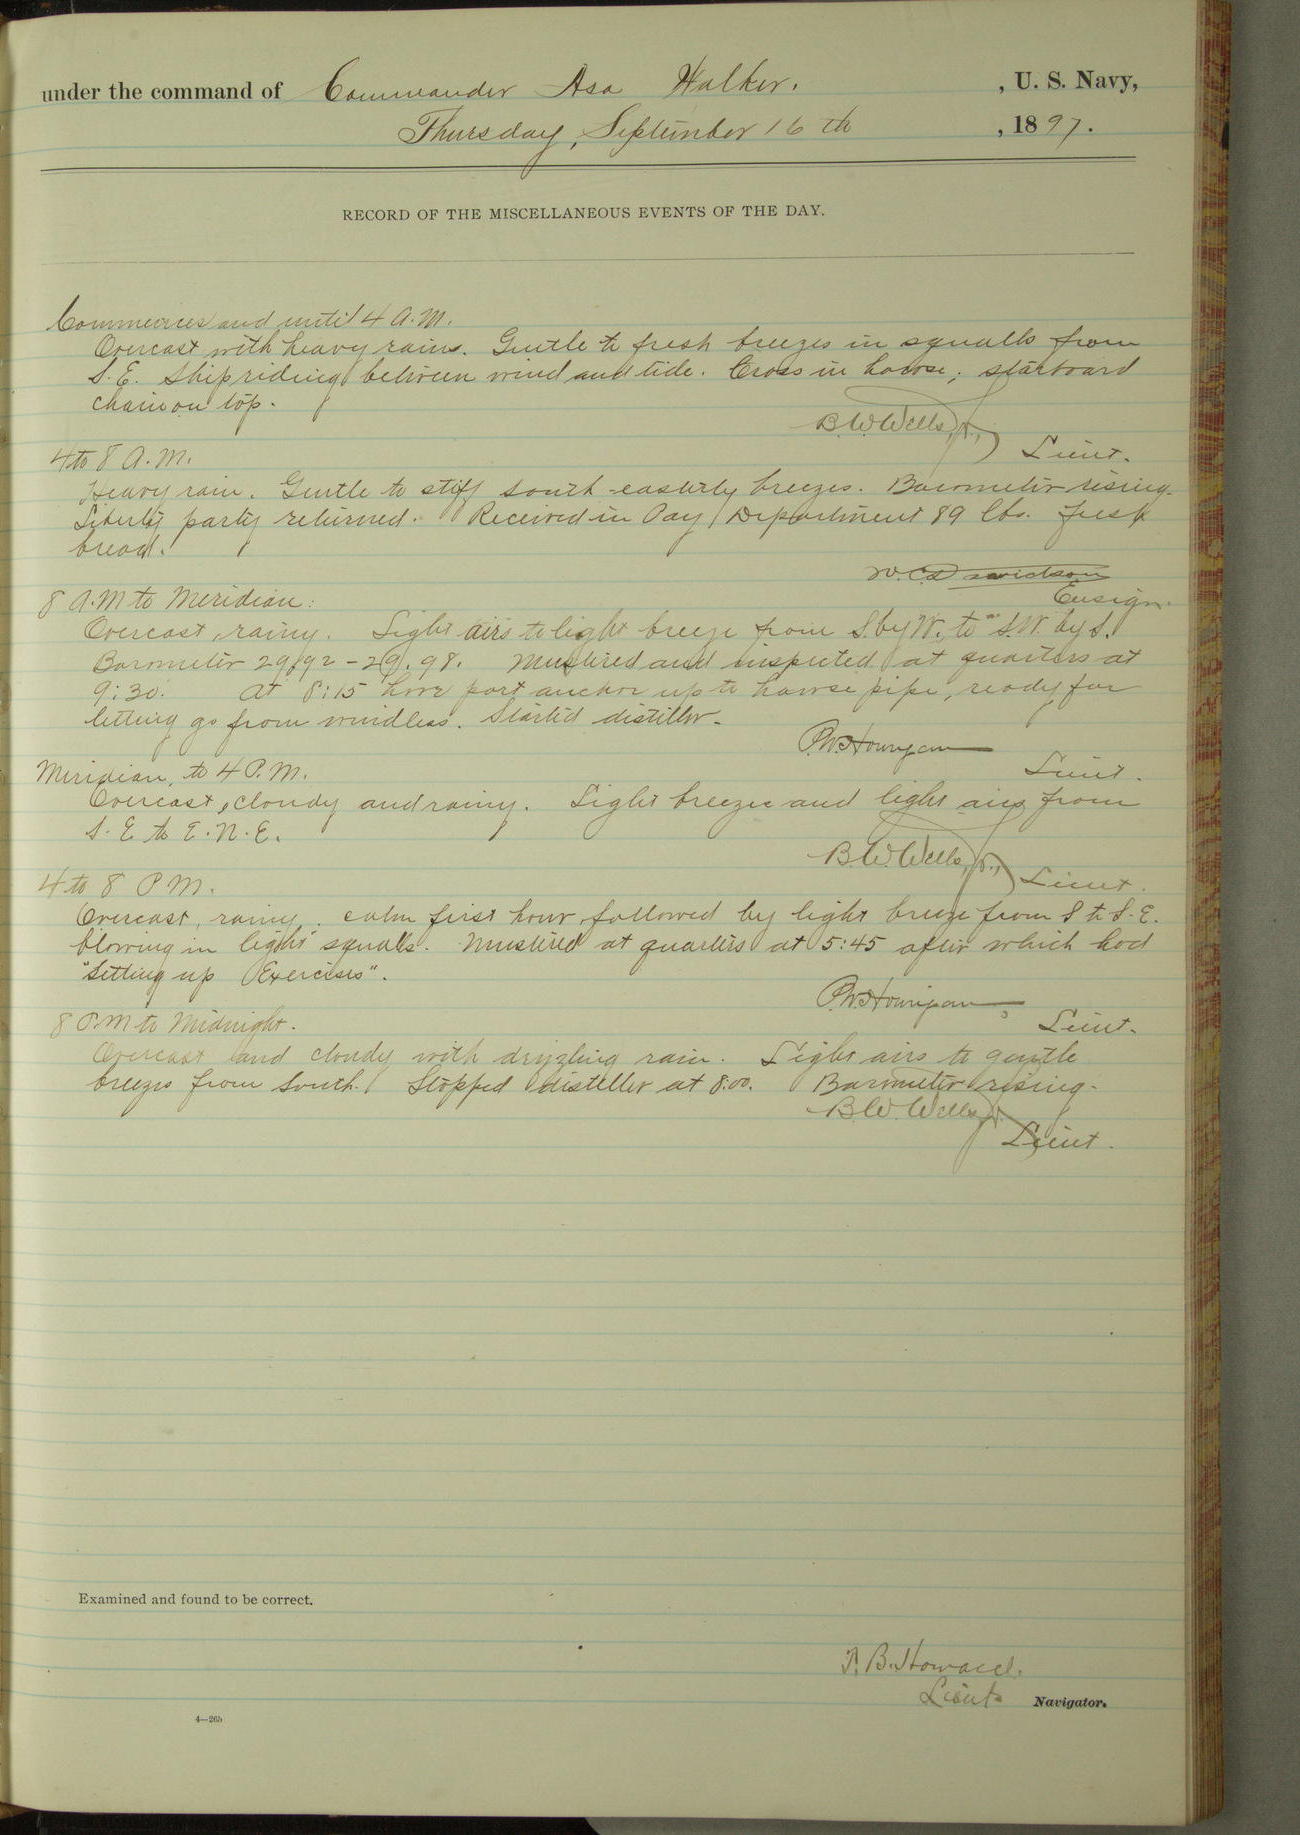 under the command of Commander Asa Walker. , U. S. Navy,
Thursday, September 16th , 1897.
RECORD OF THE MISCELLANEOUS EVENTS OF THE DAY.
Commences and until 4 A.M.
Overcast with heavy rains. Gentle to fresh breezes in squalls from
S.E. Ship riding between wind and tide. Cross in hawse; starboard
chain on top.
B.W. Wells, Jr.,
Lieut.
4 to 8 A.M.
Heavy rain. Gentle to stiff south-easterly breezes. Barometer rising.
Liberty party returned. Received in Pay Department 89 lbs. fresh
bread.
W. C. Davidson
Ensign.
8 A.M to Meridian:
Overcast, rainy. Light airs to light breeze from S. by W. to S.W. by S.
Barometer 29.92 - 29.98. Mustered and inspected at quarters at
9:30. At 8:15 hove port anchor up to hawse pipe, ready for
letting go from windlass. Started distiller.
P.W. Hourigan
Lieut.
Meridian to 4 P.M.
Overcast, cloudy and rainy. Light breezes and light airs from
S.E to E.N.E.
B.W. Wells, Jr.,
Lieut.
4 to 8 P M.
Overcast, rainy, calm first hour, followed by light breeze from S to S.E.
blowing in light squalls. Mustered at quarters at 5:45 after which had
"Setting up Exercises".
P.W. Hourigan
Lieut.
8 P.M to Midnight.
Overcast and cloudy with drizzling rain. Light airs to gentle
breezes from South. Stopped distiller at 8:00. Barometer rising.
B.W. Wells, Jr.
Lieut.
Examined and found to be correct.
T. B. Howard.
Lieut. Navigator.
4—265